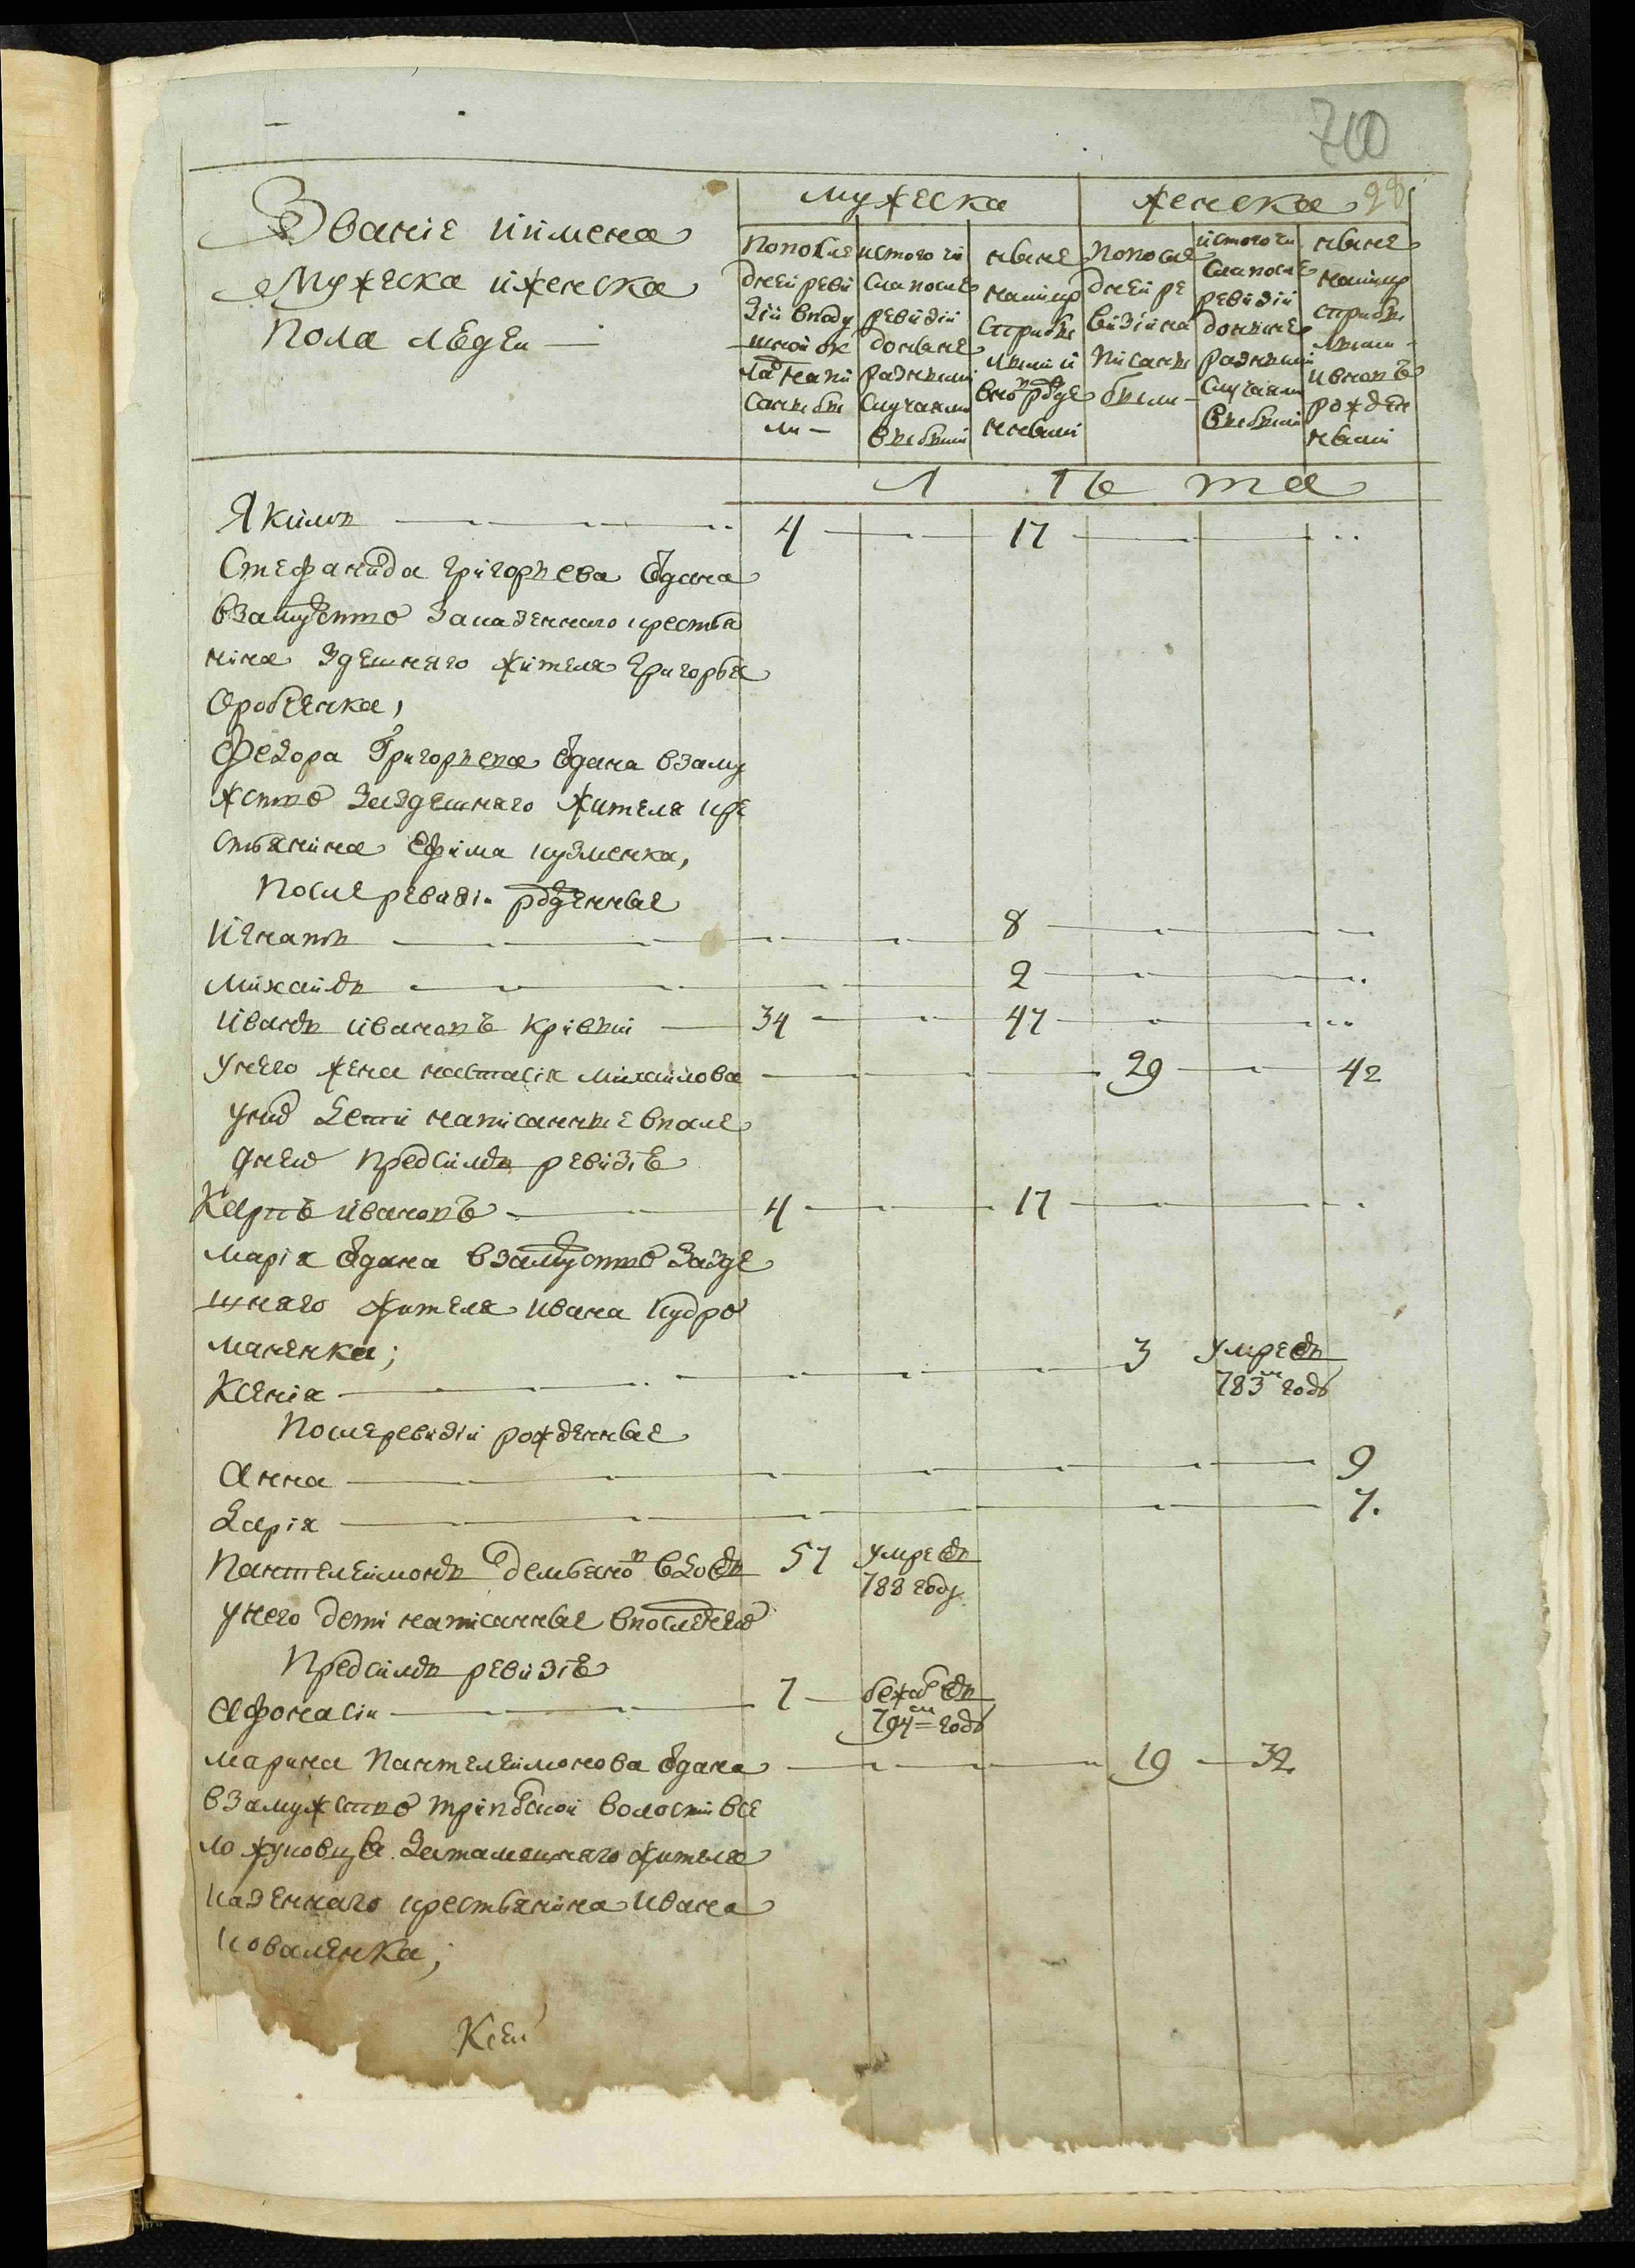 700
98
Званіе иимена
Мужеска иженска
Пола людеи —
мужеска
женска
Попосле
дней реви
зіи вподу
шной ок
ладъ напи
саны бы
ли —
истого чи
сла после
ревизіи
доныне
разными
случаями
выбыли
ныне
налицо
ныне
налицо
Попосле
дней ре
визіи на
писаны
были —
истого чи
сла после
ревизіи
доныне
разными
случаями
выбыли
Л ѣ та
Якимъ 4 17
Стефанида григорьева одана
взамужство заказенного крестья
нина здешняго жителя григорья
Федора Григорьева одана взаму
жство заздешняго жителя кре
стьянина Ефима кузменка,
После ревизіи рожденные
Игнатъ 8
михаилъ 2
иванъ ивановъ кривый 34 47
унего жена настасія михаилова 29 42
унихъ дети написанные впосле
днею предсимъ ревизію
Карпъ ивановъ 4 17
марія одана взамужство зазде
шняго жителя ивана кудро
маненка;
Ксенія 3 умре въ
783м годѣ
Послеревизіи рожденные
Анна 9
Дарія 7.
Пантелеимонъ демьяновъ вдовъ 57 умре въ
788 году
унего дети написанные впоследнею
Предсимъ ревизію
Афонасіи 7 бежалъ въ
794м годѣ
марина Пантелеимонова одана 19 32
взамужство трипольской волости все
ло жуковцы затамошняго жителя
казенного крестьянина ивана
коваленка;
Ксеи